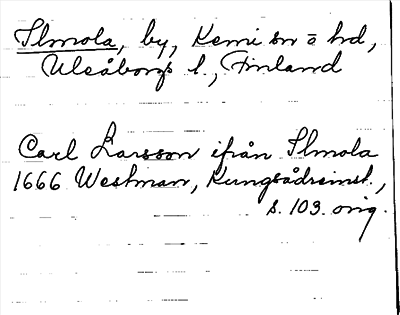 Ilmola, by, Kemi sn o hd,
Uleåborgs l., Finland
Carl Larsson ifrån Ilmola
1666 Westman, Kungsådreinst.,
s. 103. orig.